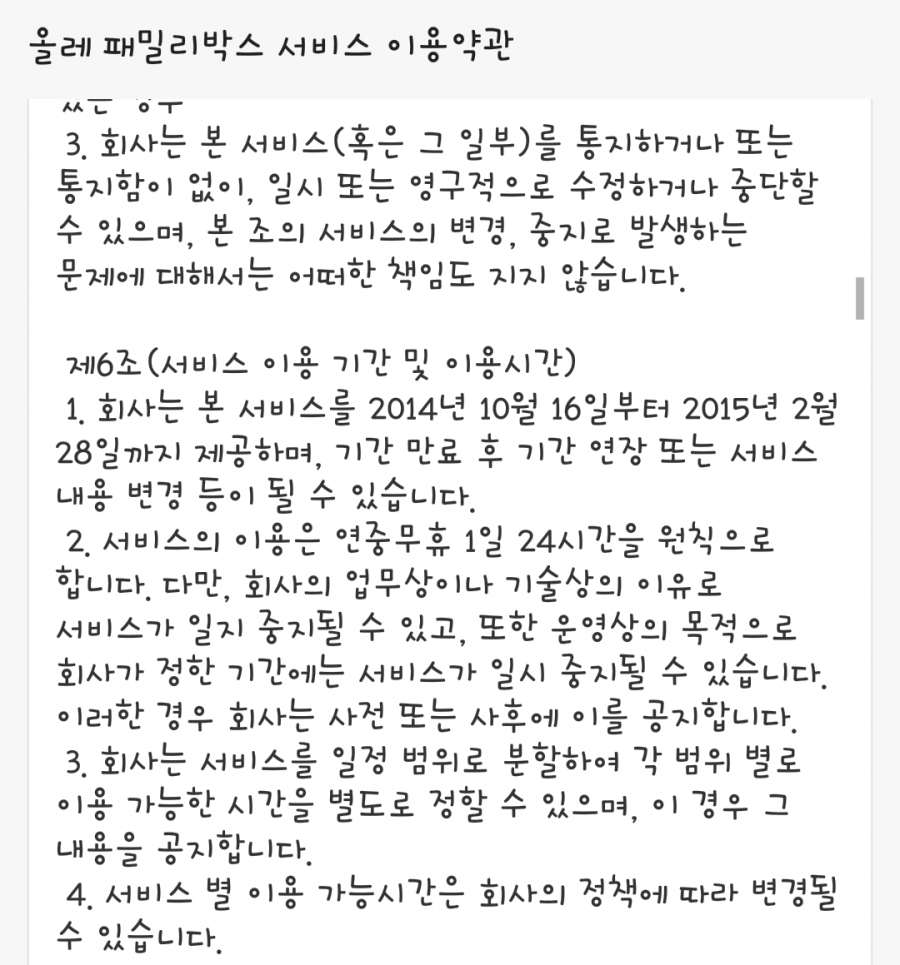 올레 패밀리박스 서비스 이용약관
있는 경우
3. 회사는 본 서비스(혹은 그 일부)를 통지하거나 또는
통지함이 없이, 일시 또는 영구적으로 수정하거나 중단할
수 있으며, 본 조의 서비스의 변경, 중지로 발생하는
문제에 대해서는 어떠한 책임도 지지 않습니다.
제6조(서비스 이용 기간 및 이용시간)
1. 회사는 본 서비스를 2014년 10월 16일부터 2015년 2월
28일까지 제공하며, 기간 만료 후 기간 연장 또는 서비스
내용 변경 등이 될 수 있습니다.
2. 서비스의 이용은 연중무휴 1일 24시간을 원칙으로
합니다. 다만, 회사의 업무상이나 기술상의 이유로
서비스가 일지 중지될 수 있고, 또한 운영상의 목적으로
회사가 정한 기간에는 서비스가 일시 중지될 수 있습니다.
이러한 경우 회사는 사전 또는 사후에 이를 공지합니다.
3. 회사는 서비스를 일정 범위로 분할하여 각 범위 별로
이용 가능한 시간을 별도로 정할 수 있으며, 이 경우 그
내용을 공지합니다.
4. 서비스 별 이용 가능시간은 회사의 정책에 따라 변경될
수 있습니다.